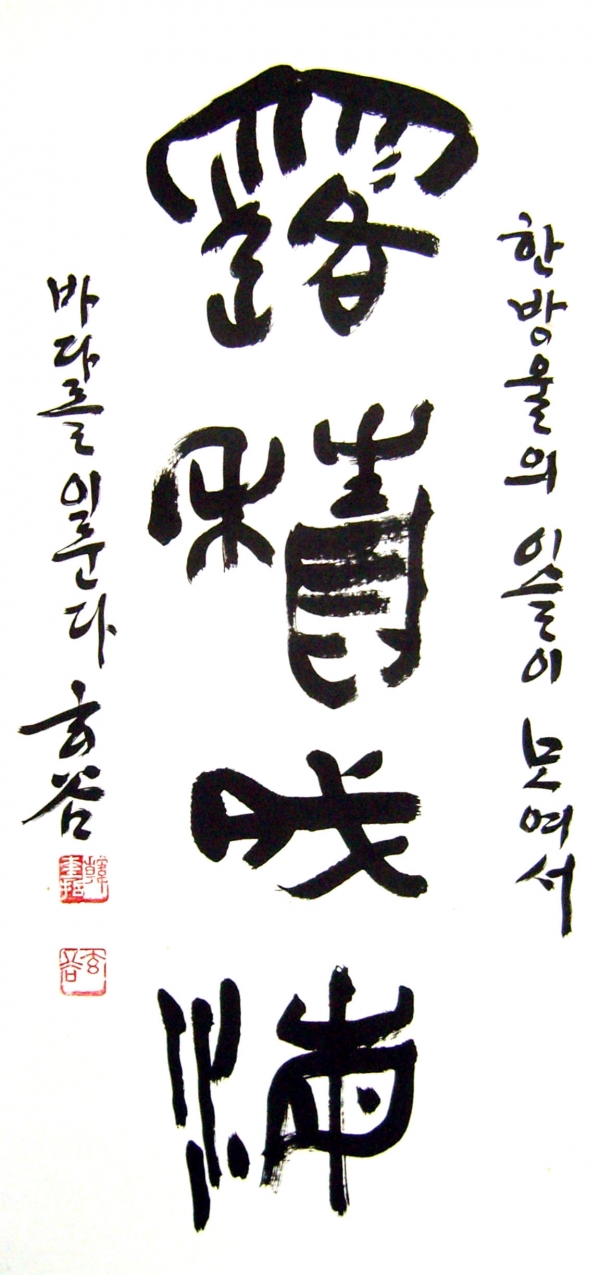 한방울의 이슬이 모여서
露積成海
바다를 이룬다 玄谷
玄谷